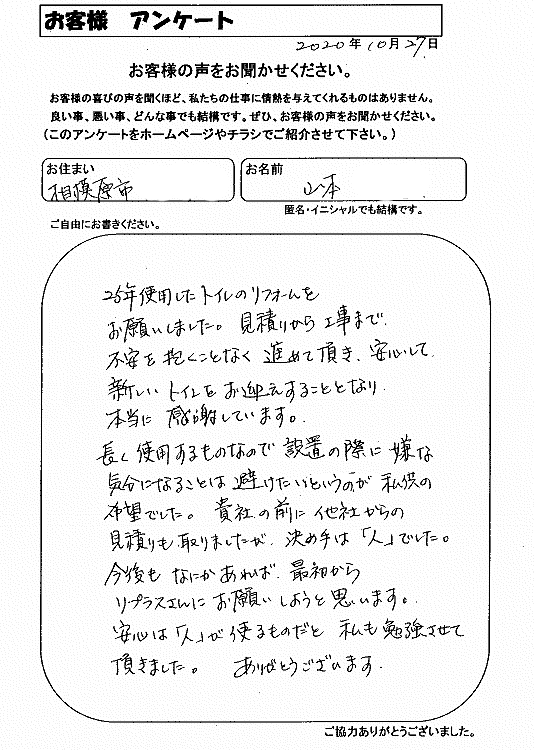 お客様 アンケート
2020年10月27日
お客様の声をお聞かせください。
お客様の喜びの声を聞くほど、私たちの仕事に情熱を与えてくれるものはありません。
良い事、悪い事、どんな事でも結構です。ぜひ、お客様の声をお聞かせください。
(このアンケートをホームページやチラシでご紹介させて下さい。)
お住まい
相模原市
お名前
山本
匿名・イニシャルでも結構です。
ご自由にお書きください。
25年使用したトイレのリフォームを
お願いしました。見積りから工事まで
不安を抱くことなく進めて頂き、安心して
新しいトイレをお迎えすることとなり
本当に感謝しています。
長く使用するものなので設置の際に嫌な
気分になることは避けたいというのが私供の
希望でした。貴社の前に他社からの
見積りも取りましたが、決め手は「人」でした。
今後もなにかあれば、最初から
リプラスさんにお願いしようと思います。
安心は「人」が使るものだと私も勉強させて
頂きました。ありがとうございます。
ご協力ありがとうございました。